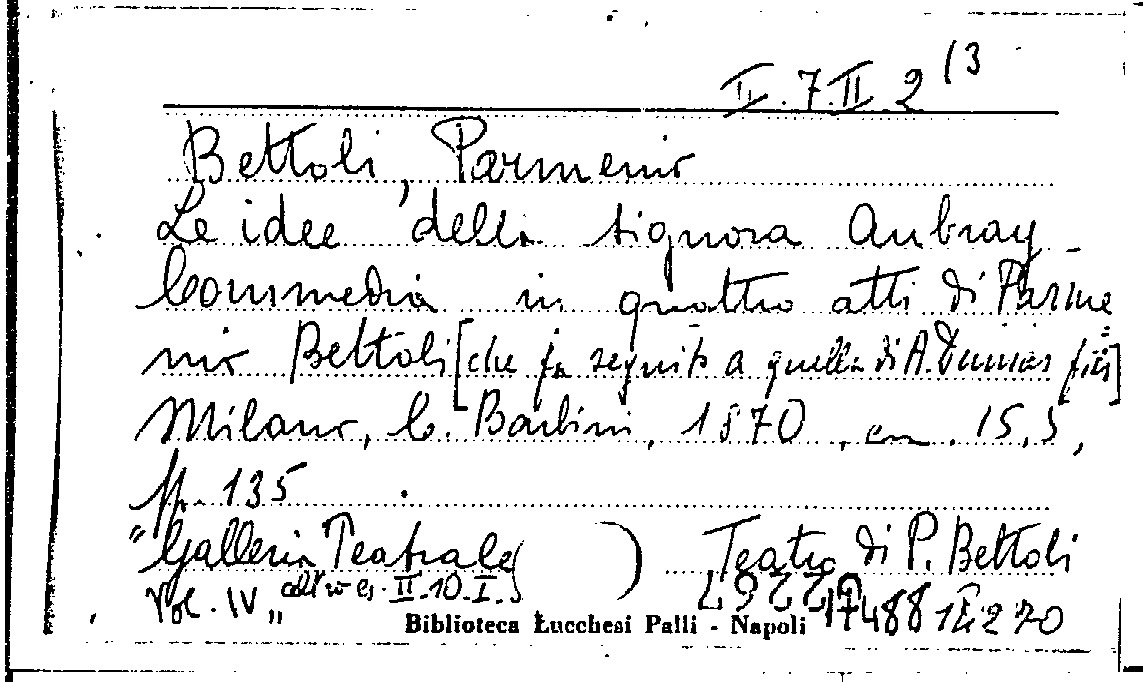 II.7.II.2 (3
Bettoli, Parmenio
Le idee della signora Aubray -
Commedia in quattro atti di Parme=
nio Bettoli [che fa seguito a quella di A. Dumas fils]
Milano, C. Barbini, 1870, cm. 15,5,
pp. 135
"Galleria Teatrale ( ) Teatro di P. Bettoli
Vol. IV" altro es. II.10.I.5
Biblioteca Lucchesi Palli - Napoli